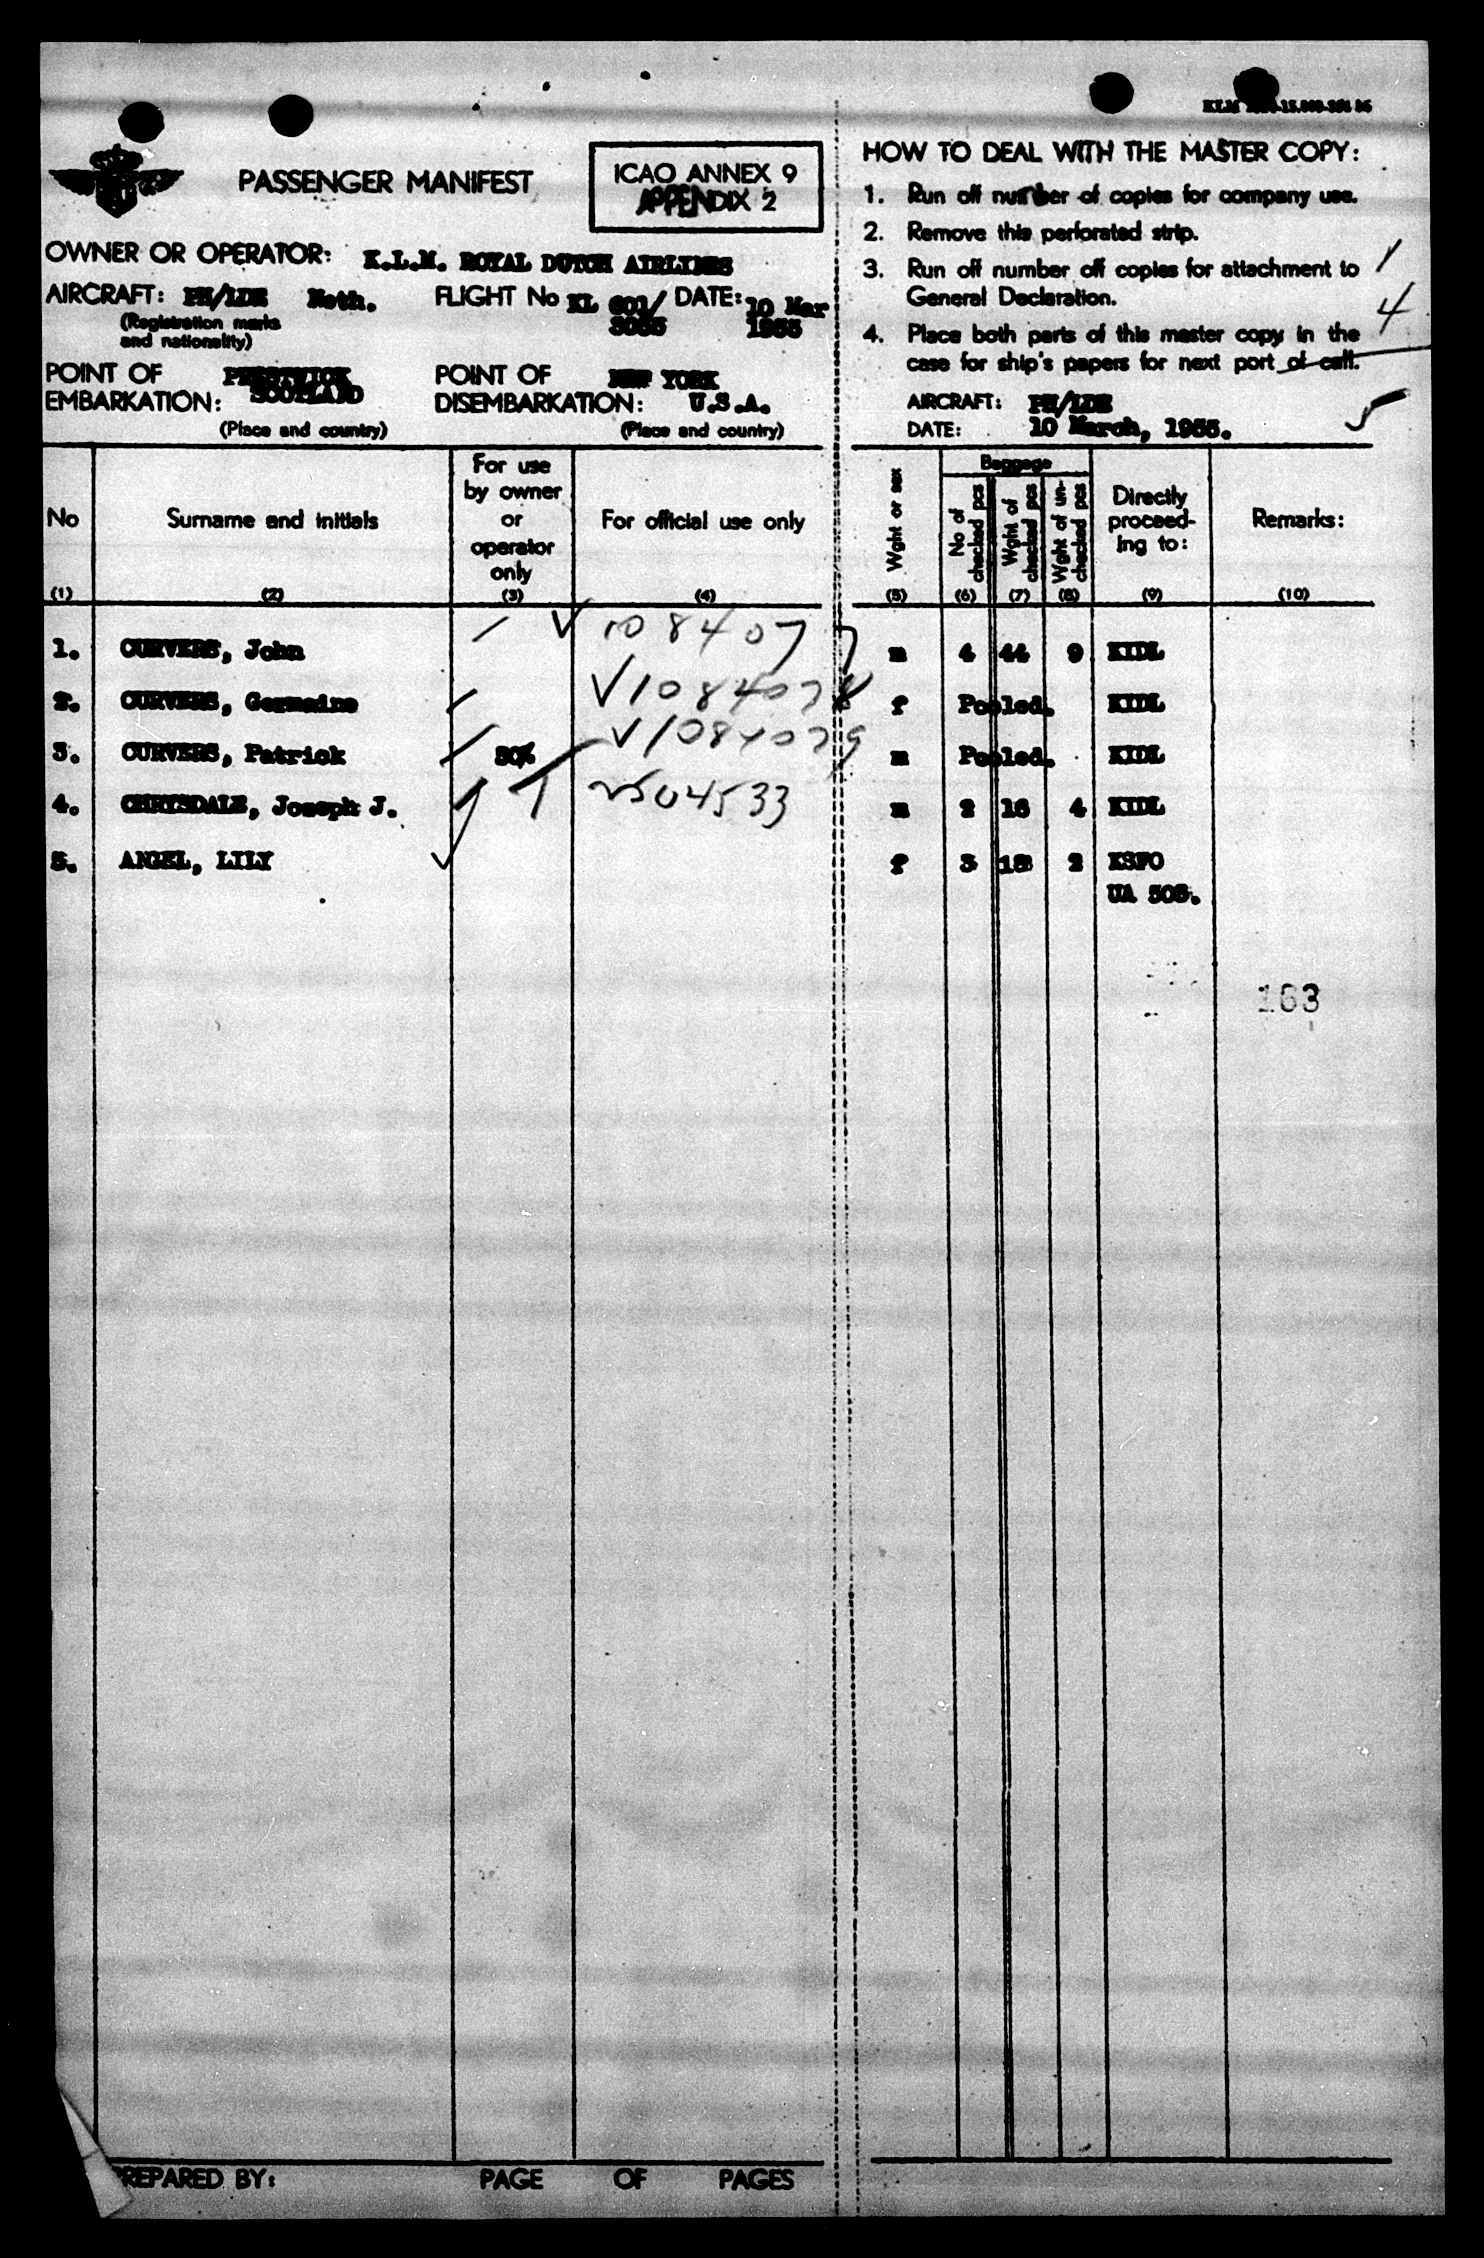 PASSENGER MANIFEST
ICAO ANNEX 9
APPENDIX 2
OWNER OR OPERATOR: K.L.M. ROYAL DUTCH AIRLINES
AIRCRAFT: PH/LDE Neth. FLIGHT No KL 601/ DATE: 10 Mar
(Registration marks 1955
and nationality)
POINT OF PRESTWICK POINT OF NEW YORK
EMBARKATION: SCOTLAND DISEMBARKATION: U.S.A.
(Place and country) (Place and country)
HOW TO DEAL WITH THE MASTER COPY:
1. Run off number of copies for company use.
2. Remove this perforated strip.
3. Run off number off copies for attachment to
General Declaration.
4. Place both parts of this master copy in the
case for ship's papers for next port of call.
1
4
5
AIRCRAFT: PH/LDE
DATE: 10 March, 1955.
No
(1)
Surname and initials
(2)
For use
by owner
or
operator
only
(3)
For official use only
(4)
Wght or sex
(5)
Baggage
No of
checked pcs
(6)
Wght of
checked pcs
(7)
Wght of un-
checked pcs
(8)
Directly
proceed-
ing to:
(9)
Remarks:
(10)
1. CURVERS, John V 1084077 m 4 44 9 KIDL
2. CURVERS, Germaine V1084078 f Pooled. KIDL
3. CURVERS, Patrick 50% V1084079 m Pooled. KIDL
4. CHRYSDALE, Joseph J. V504533 m 2 16 4 KIDL
5. ANGEL, LILY f 3 18 2 KSFO
UA 505.
163
PREPARED BY: PAGE OF PAGES